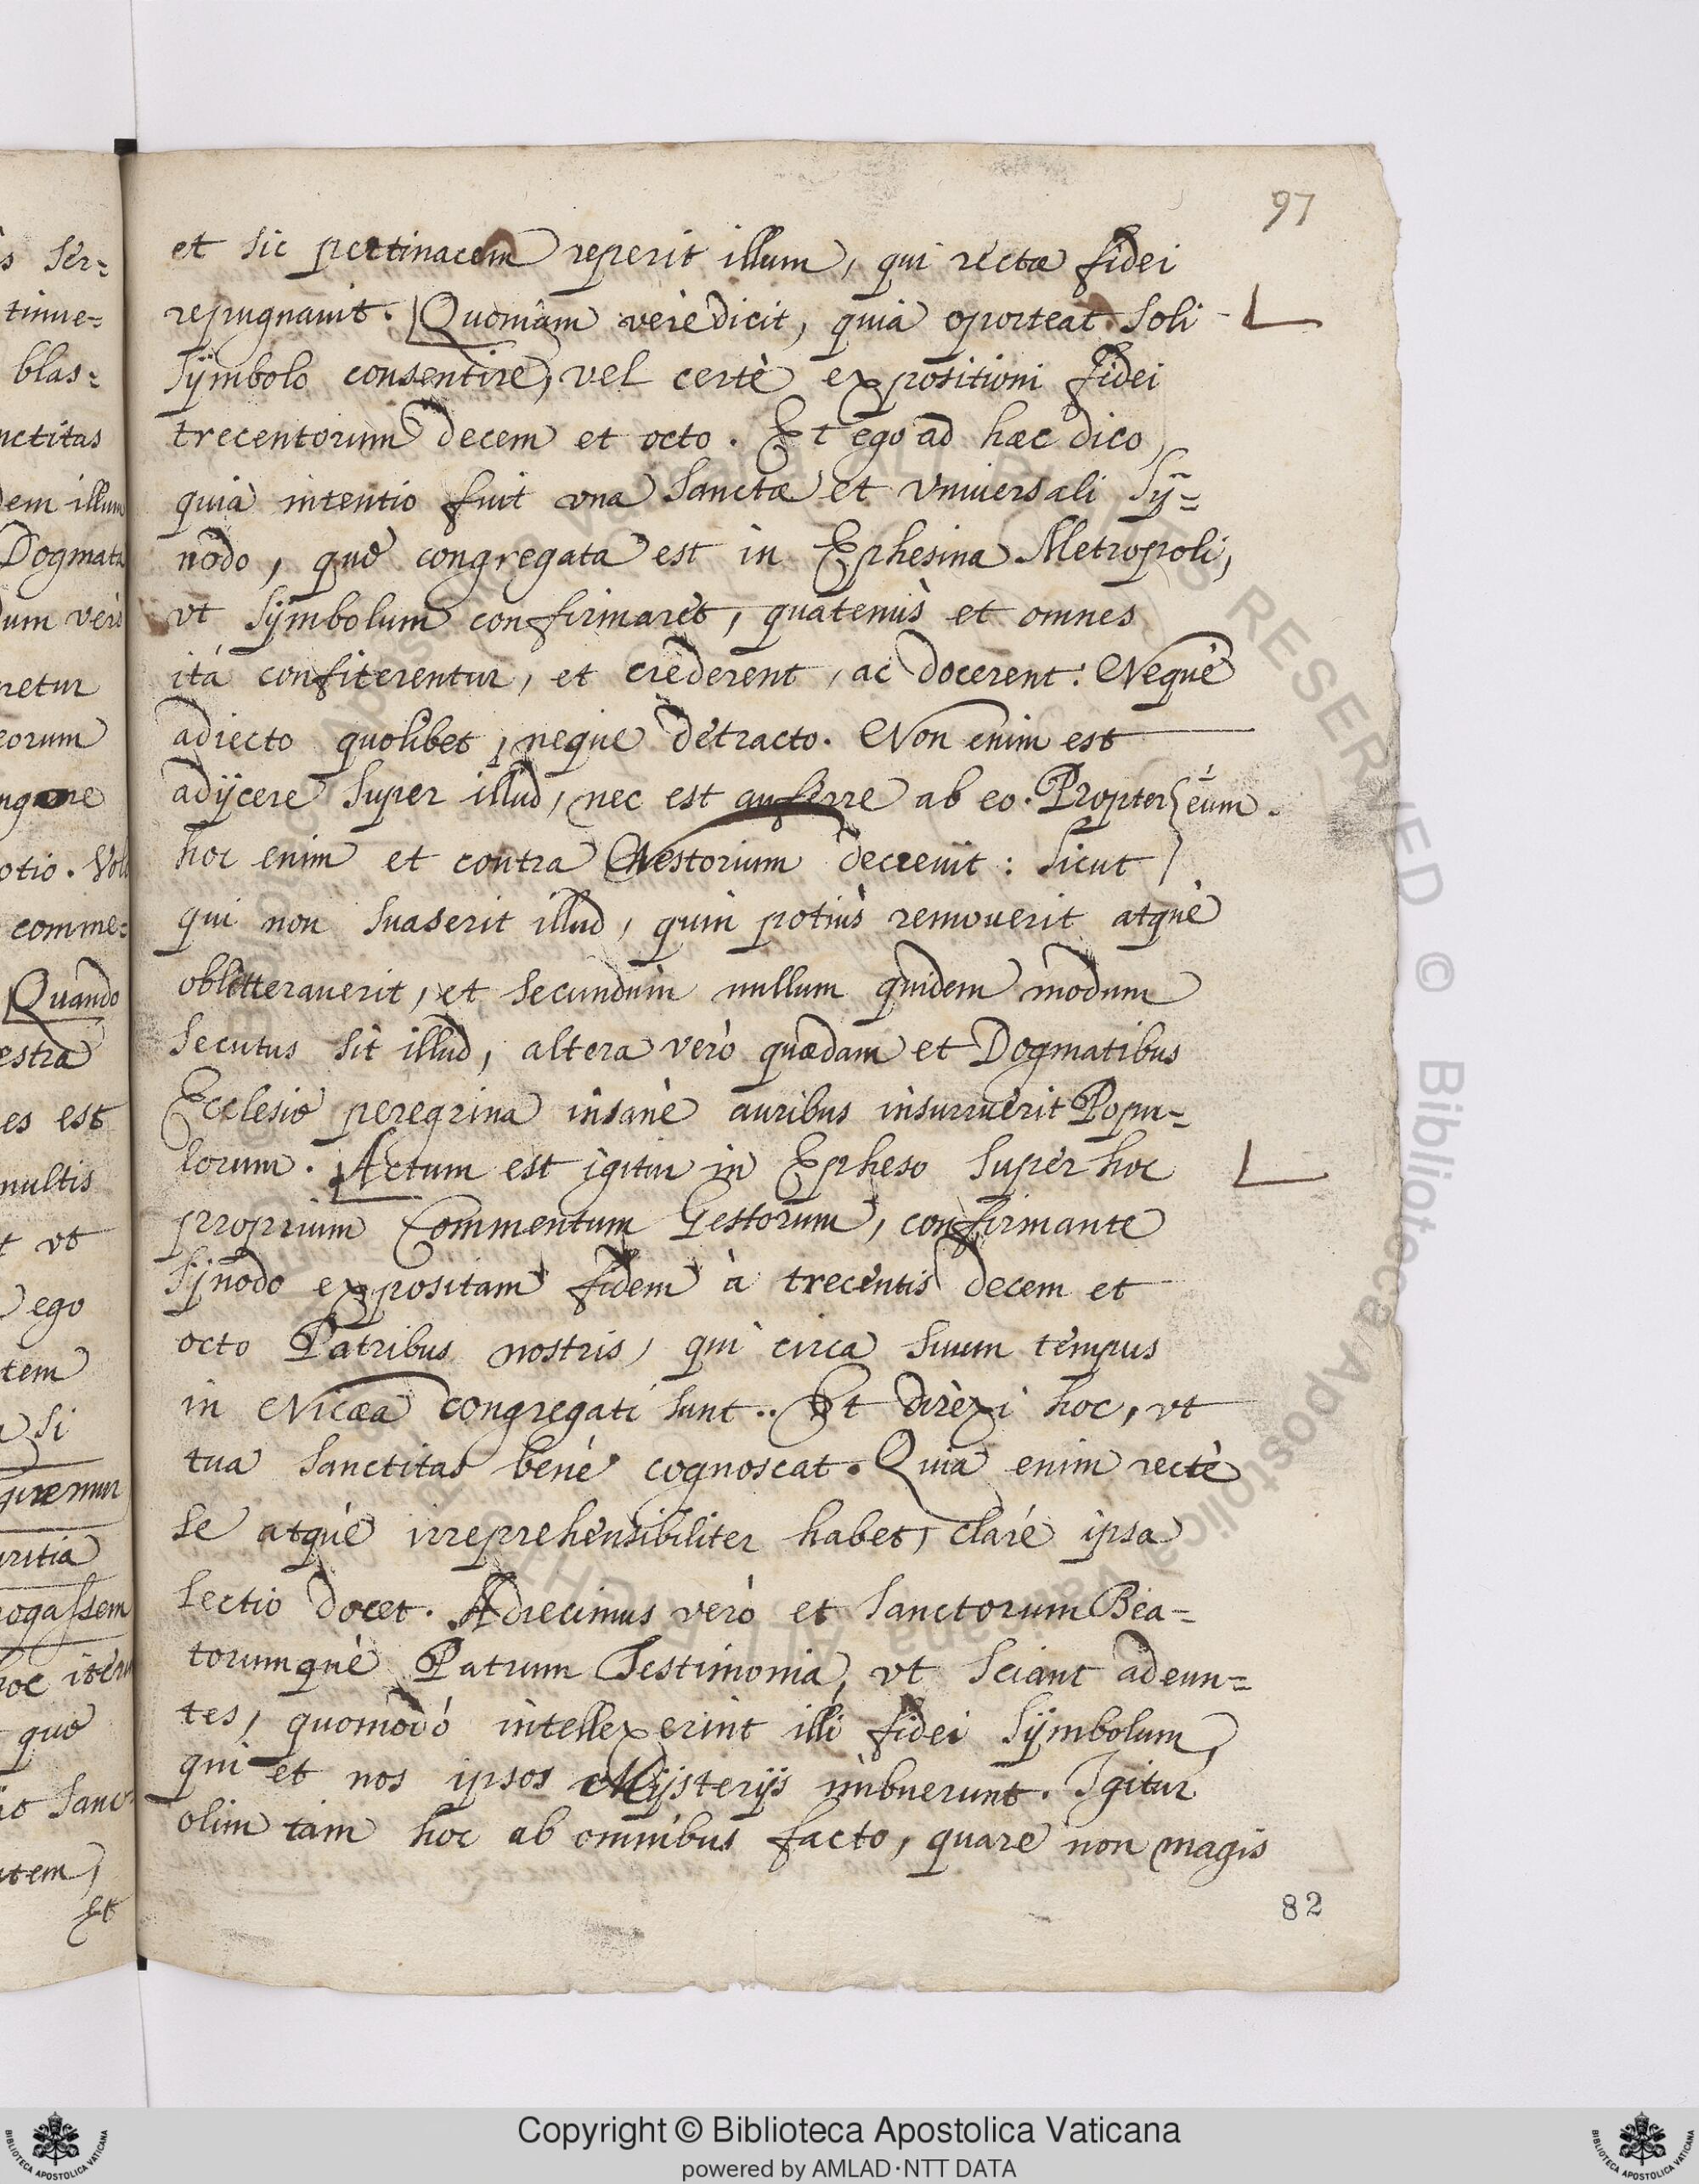 97
et sic pertinacem reperit illum, qui rectæ fidei
repugnauit. Quoniàm verè dicit, quià oporteat soli
Sÿmbolo consentire, vel certè expositioni fidei
trecentorum decem et octo. Et ego ad hæc dico,
quià intentio fuit vna Sanctæ et Vniuersali Sÿ=
nodo, quę congregata est in Ephesina Metropoli,
vt Sÿmbolum confirmaret, quatenùs et omnes
ità confiterentur, et crederent, ac docerent: Nequè
adiecto quolibet, neque detracto. Non enim est
adÿcere super illud, nec est auferre ab eo. Propter eùm.
hoc enim et contra Nestorium decreuit: Sicut
qui non suaserit illud, quin potiùs remouerit atquè
oblitterauerit, et secundùm nullum quidem modum
secutus sit illud, altera verò quædam et Dogmatibus
Ecclesię peregrina insanè auribus insurruerit Popu=
lorum. Actum est igitur in Epheso super hoc
proprium Commentum Gestorum, confirmante
Sÿnodo expositam fidem à trecentis decem et
octo Patribus nostris, qui circa suum tempus
in Nicæa congregati sunt.. Et direxi hoc, vt
tua Sanctitas benè cognoscat. Quià enim rectè
se atquè irreprehensibiliter habet, clarè ipsa
lectio docet. Adiecimus verò et Sanctorum Bea=
torumquè Patrum Testimonia, vt sciant adeun=
tes, quomodò intellexerint illi fidei Sÿmbolum,
qui et nos ipsos Mÿsterÿs imbuerunt. Igitur
olim iàm hoc ab omnibus facto, quare non magis
82
s Ser=
tinue=
blas=
nctitas
dem illum
Dogmata
dum verò
retur
eorum
comme=
Quando
estra
es est
multis
t vt
ego
tem
si
quremur
uritia
rogassem
hoc iterù
quę
Sanc
utem,
Et
Copyright © Biblioteca Apostolica Vaticana
powered by AMLAD·NTT DATA